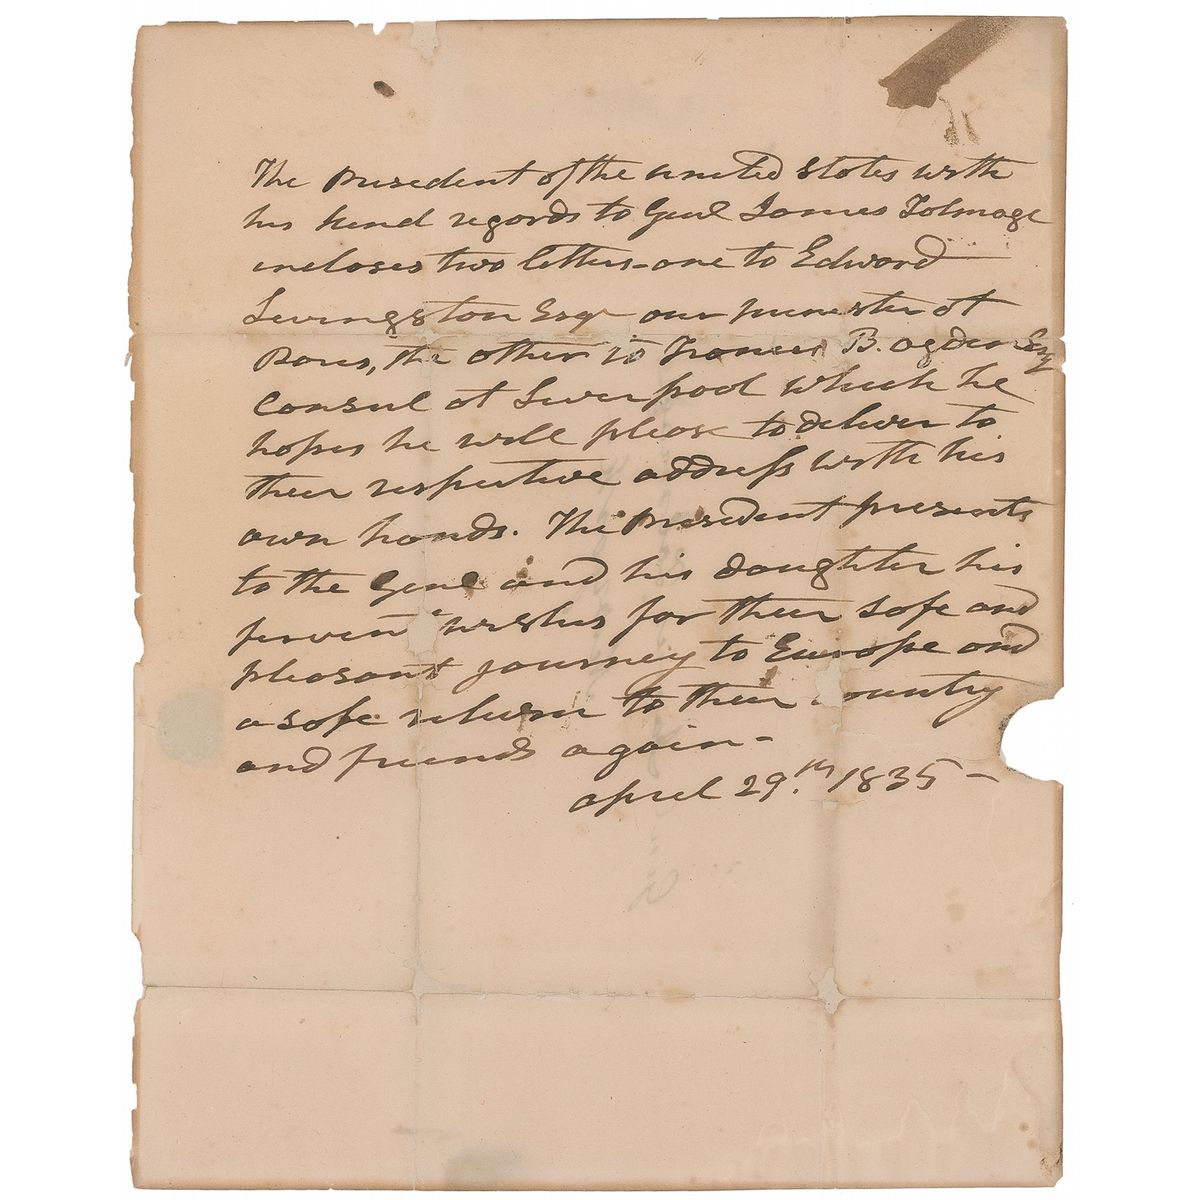 The President of the united states with
his kind regards to Genl James Talmage
incloses two letters - one to Edward
Livingston Esqr our minister at
Paris, the other to Francis B. ogden Esq
consul at Liverpool which he
hopes he will please to deliver to
their respective address with his
own hands. The President presents
to the Genl and his daughter his
fervent wishes for their safe and
pleasant journey to Europe and
a safe return to their country
and friends again -
april 29.th 1835 -